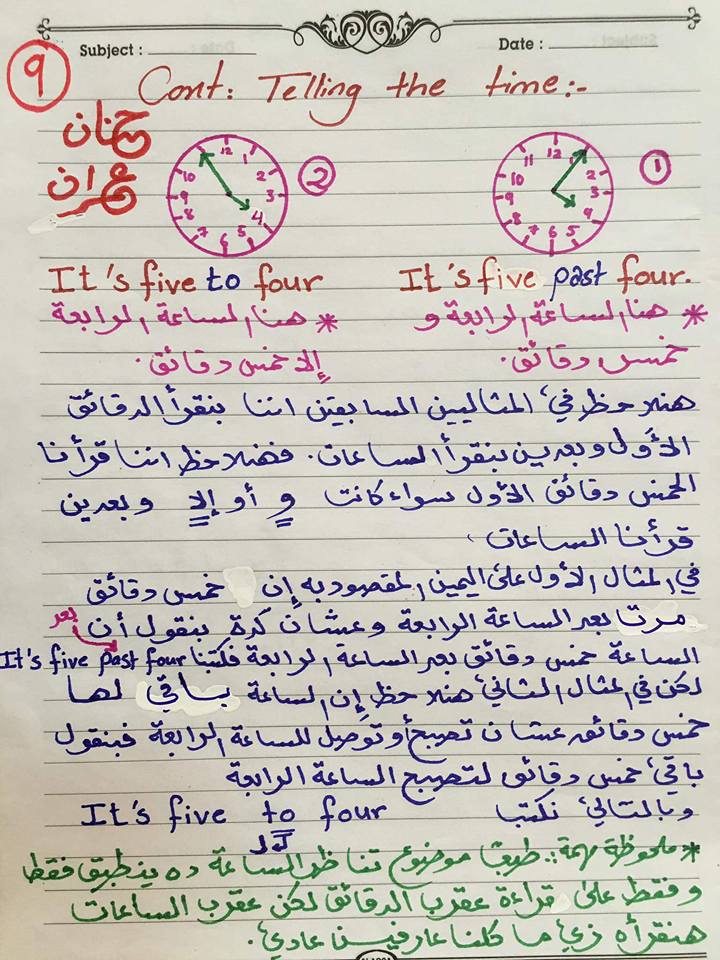 Subject :
Date :
٩
Cont: Telling the time:-
حنان
عمران
①
②
12 1 2 3 4 5 6 7 8 9 10
12 1 2 3 4 5 6 7 8 9 10 11
It's five past four.
It's five to four
* هنا الساعة الرابعة و
خمس دقائق.
* هنا الساعة الرابعة
إلا خمس دقائق.
هنلاحظ في المثاليين السابقين اننا بنقرأ الدقائق
الأول وبعدين بنقرأ الساعات. فهنلاحظ اننا قرأنا
الخمس دقائق الأول سواء كانت و أو إلا وبعدين
قرأنا الساعات
في المثال الأول على اليمين المقصود به إن خمس دقائق
مرت بعد الساعة الرابعة وعشان كدة بنقول أن
بعد
الساعة خمس دقائق بعد الساعة الرابعة فكتبنا It's five past four
لكن في المثال الثاني هنلاحظ إن الساعة باقي لها
خمس دقائق عشان تصبح أو توصل للساعة الرابعة فبنقول
باقي خمس دقائق لتصبح الساعة الرابعة
وبالتالي نكتب It's five to four
* ملحوظة مهمة: طبعا موضوع تناظر الساعة ده ينطبق فقط
وفقط على قراءة عقرب الدقائق لكن عقرب الساعات
هنقرأه زي ما كلنا عارفين عادي.